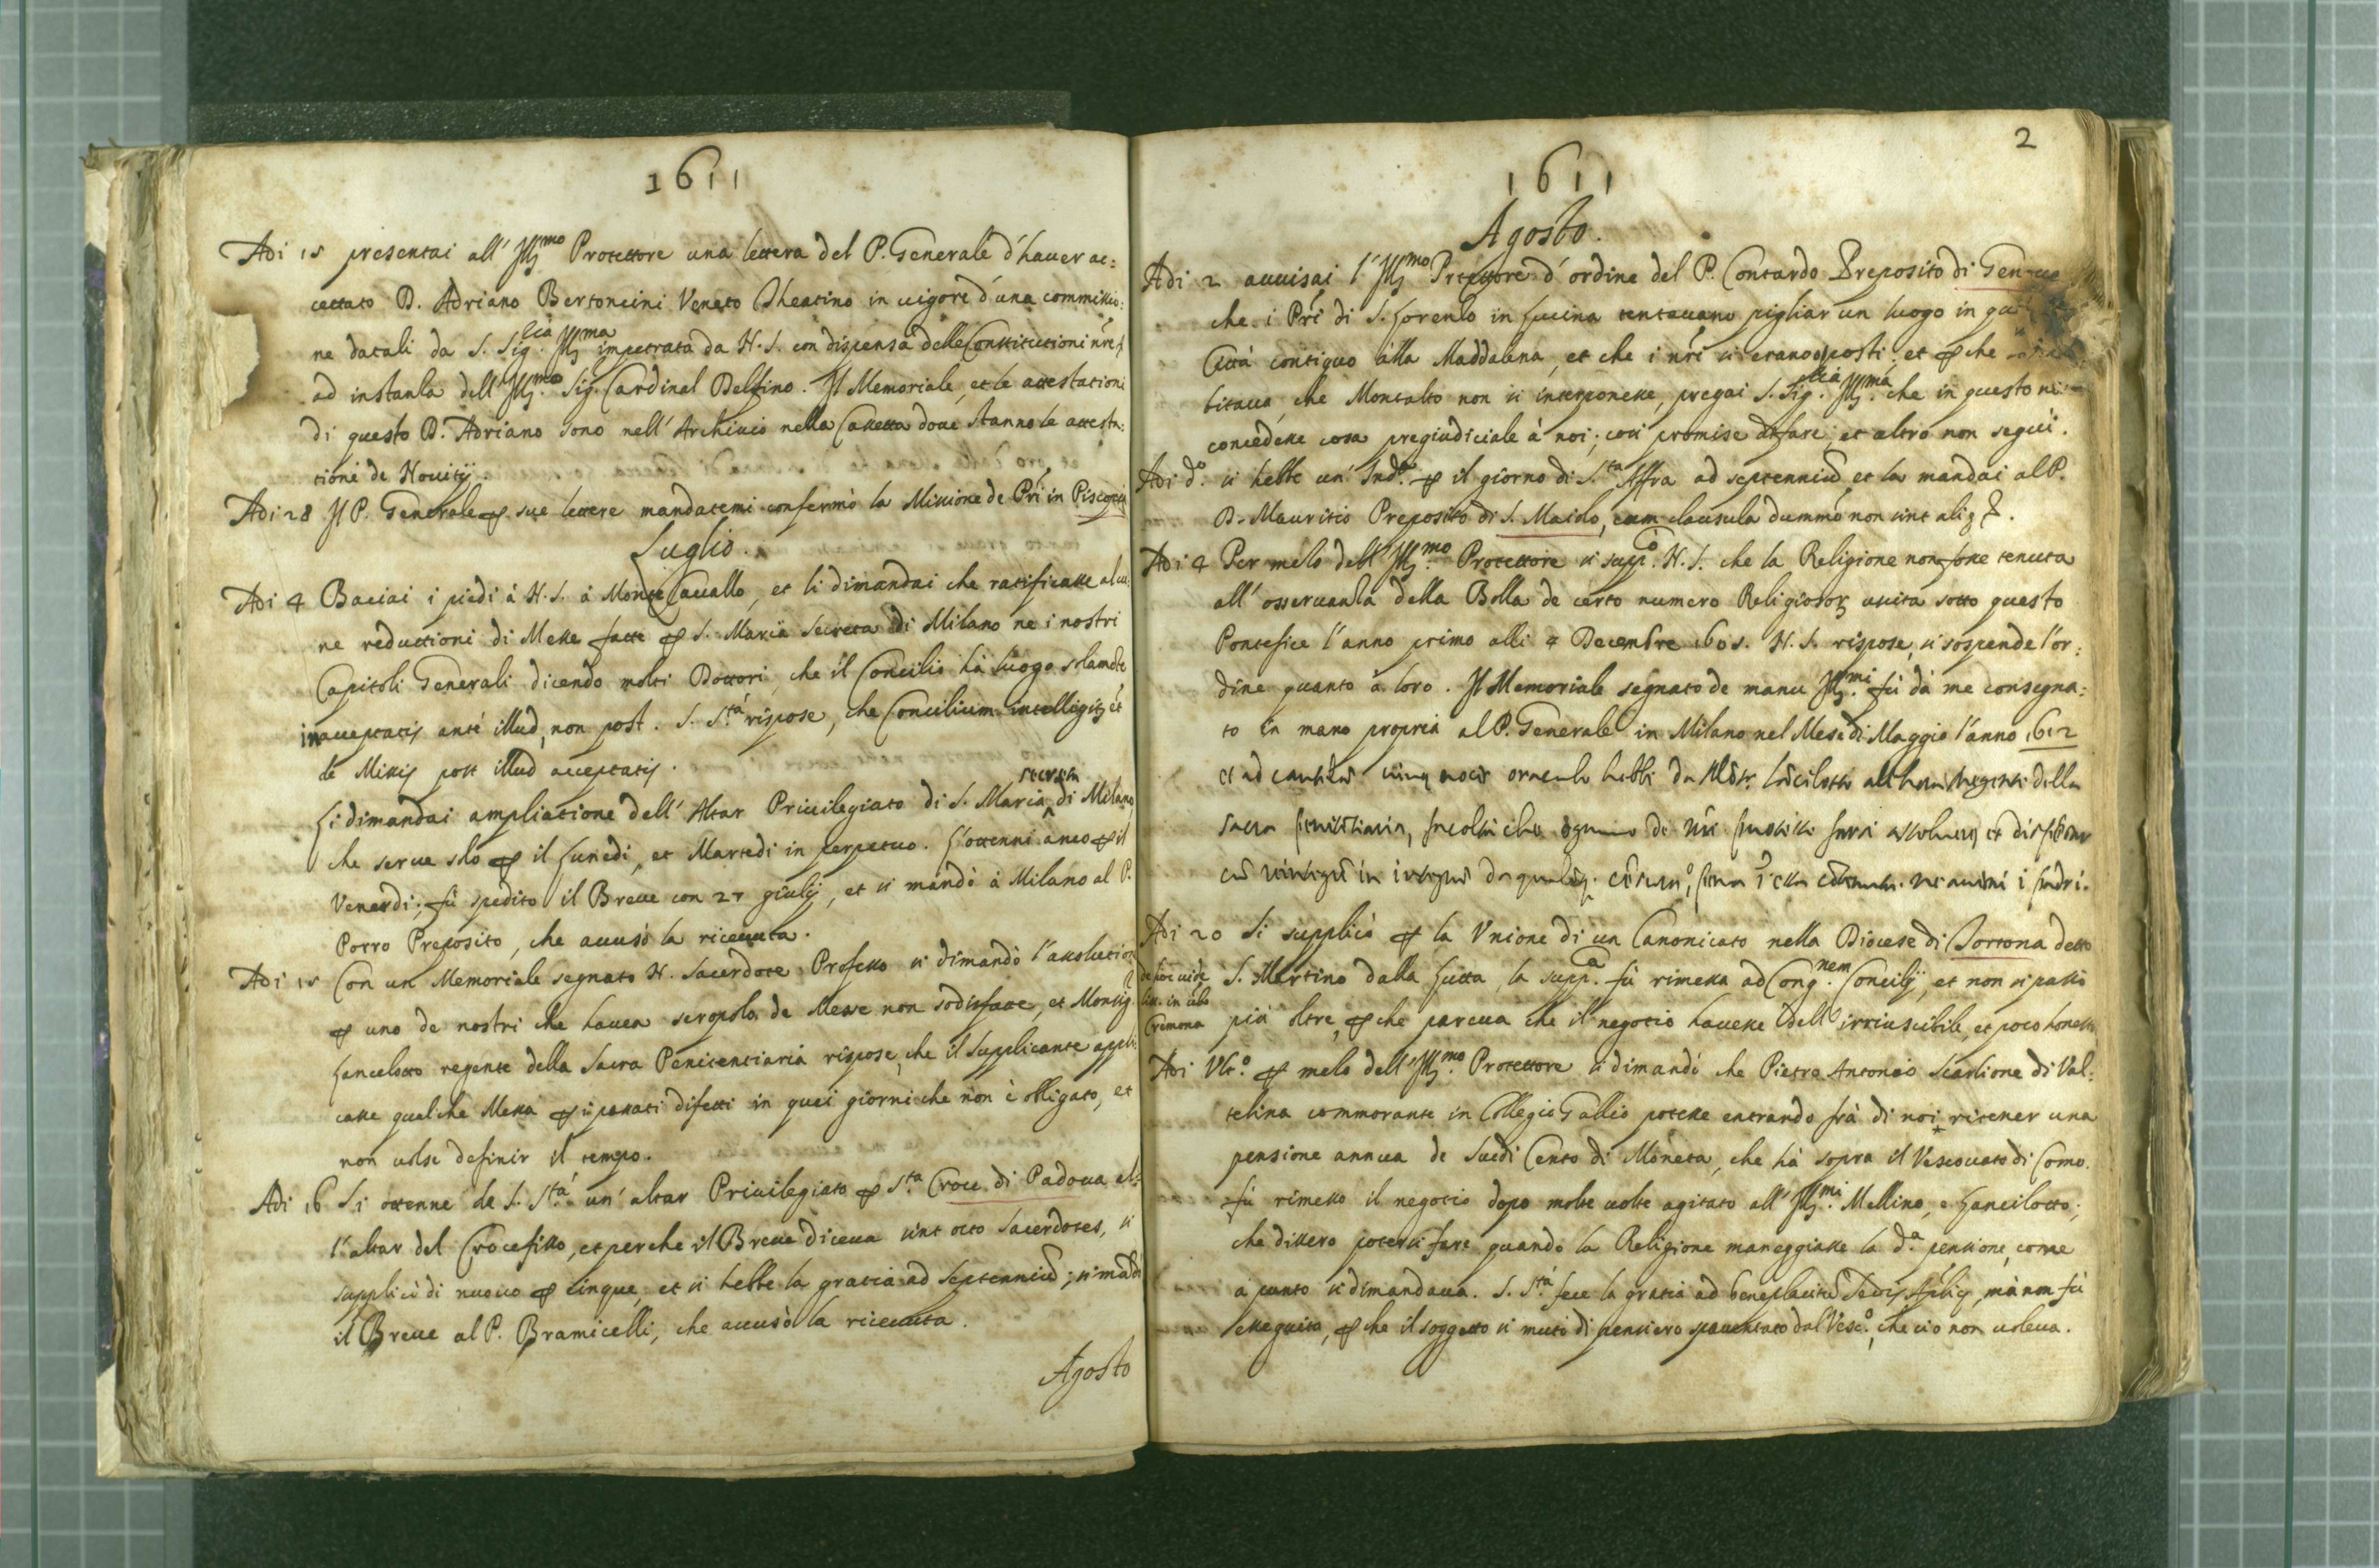 1611
Adi 15 presentai all' Ill.mo Protettore una lettera del P. Generale d'hauer ac:
cettato D. Adriano Bertoncini Veneto Theatino in uigore d'una commissio:
ne datali da S. Sig.ria Ill.ma impetrata da N. S. con dispensa delle Constitutioni nre
ad instanza dell' Ill.mo Sig. Cardinal Delfino. Il Memoriale, et le attestationi
di questo D. Adriano sono nell' Archiuio nella Cassetta doue stanno le attesta:
tioni de Nouitij.
Adi 28 Il P. Generale p sue lettere mandatemi confermò la Missione de Pri in Piscopia
Luglio.
Adi 4 Baciai i piedi à N. S. à Monte Cauallo, et li dimandai che ratificasse alcu:
ne reductioni di Messe fatte p S. Maria Secreta di Milano ne i nostri
Capitoli Generali dicendo molti Dottori, che il Concilio hà luogo solamte
in acceptatis ante illud, non post. S. S.tà rispose, che Concilium intelligitr et
de Missis post illud acceptatis.
Li dimandai ampliatione dell' Altar Priuilegiato di S. Maria secreta di Milano
che serue solo p il Lunedi, et Martedi in perpetuo. L'ottenni anco p il
Venerdi; fù spedito il Breue con 27 giulij, et si mandò à Milano al P.
Porro Preposito, che auusò la riceuuta.
Adi 15 Con un Memoriale segnato N. Sacerdote Professo si dimandò l'assolution
p uno de nostri che hauea scropolo de Messe non sodisfatte, et Monsig.r
Lancelotto regente della Sacra Penitentiaria rispose, che il Supplicante appli:
casse qualche Messa p i passati difetti in quei giorni che non è obligato, et
non uolse definir il tempo.
Adi 16 Si ottenne da S. S.tà un' altar Priuilegiato p S.ta Croce di Padoua al:
l'altar del Crocefisso, et perche il Breue diceua sint octo Sacerdotes, si
supplicò di nuouo p cinque, et si hebbe la gratia ad Septenniu; si mandò
il Breue al P. Bramicelli, che accusò la riceuuta.
Agosto
2
1611
Agosto.
Adi 2 auuisai l' Ill.mo Protettore d' ordine del P. Contardo Preposito di Genoua
che i Pri di S. Lorenzo in Lucina tentauano pigliar un luogo in
Città contiguo alla Maddalena, et che i nri si erano opposti, et p che
bitaua, che Montalto non si interponesse, pregai S. Sig.ria Ill.ma che in questo
concedesse cosa pregiudiciale à noi; cosi promise di fare, et altro non seguì.
Adi d.o si hebbe un' Ind.a p il giorno di S.ta Affra ad septenniu, et la mandai al P.
D. Mauritio Preposito di S. Maiolo, cum clausula dummo non sint aliq
Adi 4 Per mezo dell' Ill.mo Protettore si supp.cò N. S. che la Religione non fosse tenuta
all' osseruanza della Bolla de certo numero Religiosor uscita sotto questo
Pontefice l'anno primo alli 4 Decembre 1605. N. S. rispose, si sospende l'or:
dine quanto à loro. Il Memoriale segnato de manu Ill.mi fù dà me consegna:
to in mano propria al P. Generale in Milano nel Mese di Maggio l'anno 1612
et ad cautela uiuę uocis oraculo hebbi da Mons.r Lancilotto all'hora Regente della
Sacra Penitentiaria,
Adi 20 Si supplicò p la Vnione di un Canonicato nella Diocese di Tortona detto
S. Martino dalla Gutta, la supp.a fù rimessa ad Cong.nem Concilij, et non si passò
più oltre, p che pareua che il negotio hauesse dell' irriuscibile, et poco honesto
Cremona
Adi Vlt.o p mezo dell' Ill.mo Protettore si dimandò che Pietro Antonio Scarlione di Val:
telina commorante in Collegio Gallio potesse entrando frà di noi ritener una
pensione annua de Scudi Cento di Moneta, che hà sopra il Vescouato di Como.
fù rimesso il negotio dopo molte uolte agitato all' Ill.mi Mellino, e Lancilotto;
che dissero potersi fare quando la Religione maneggiasse la d.a pensione come
à punto si dimandaua. S. S.tà fece la gratia ad beneplacitu Sedis Aplicę, mà non fù
esseguita, p che il soggetto si mutò di pensiero spauentato dal Vesc.o, che ciò non uoleua.